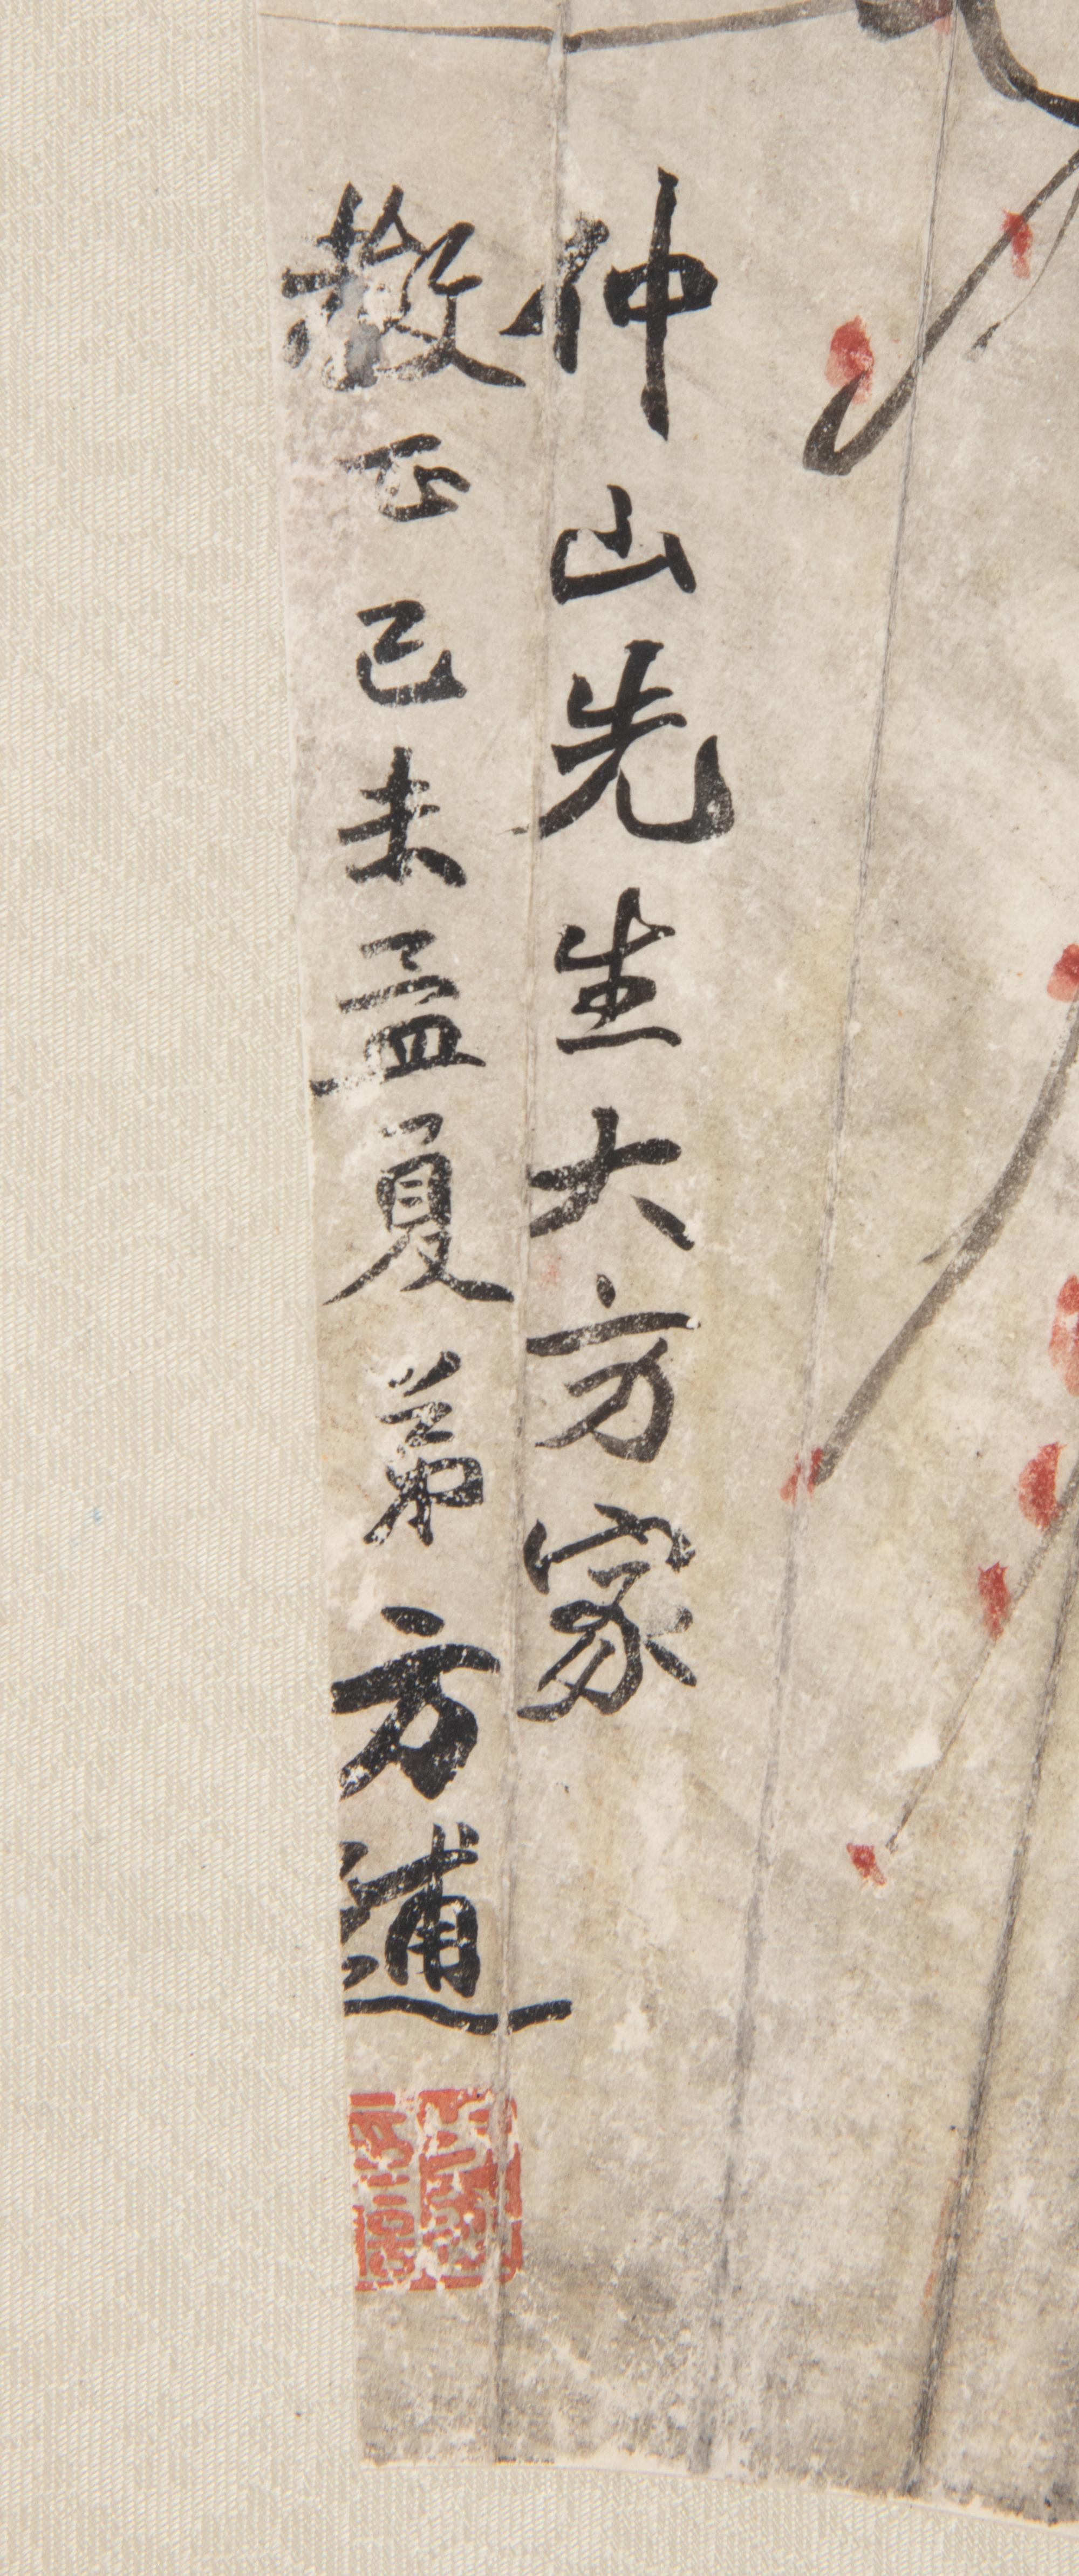 仲山先生大方家
教正己未孟夏弟方逋